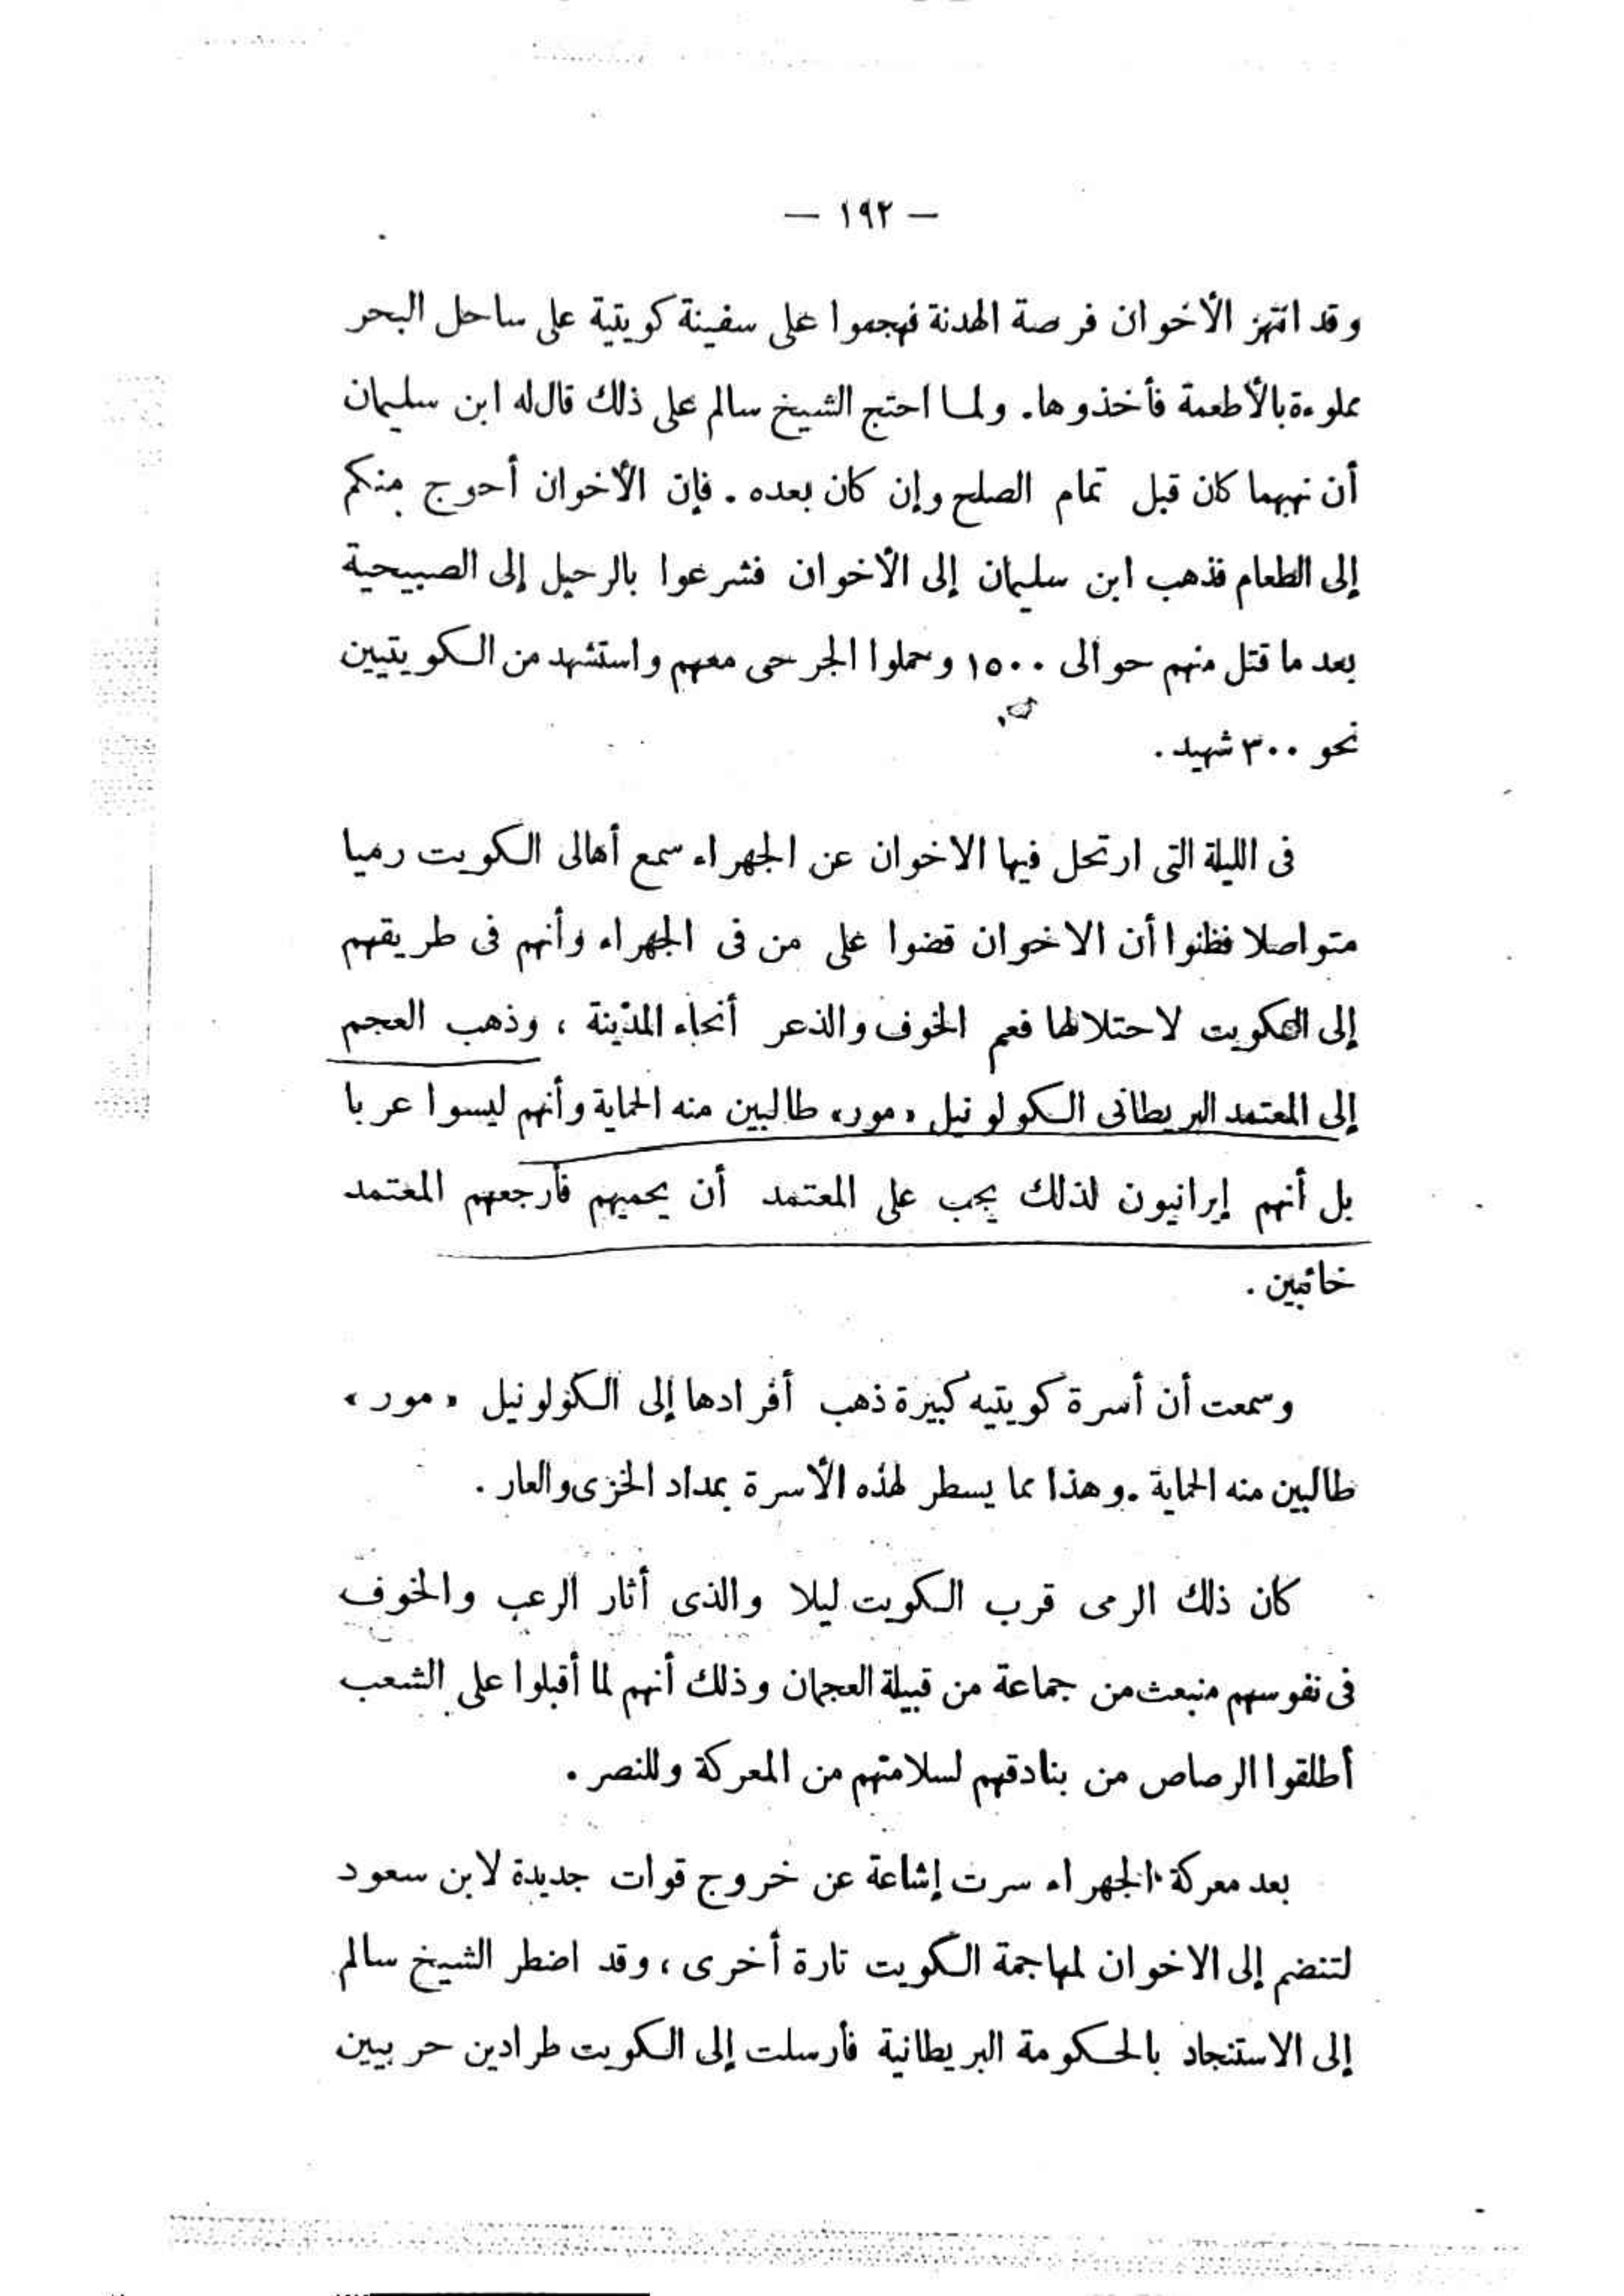 — ١٩٢ —
وقد انتهز الأخوان فرصة الهدنة فهجموا على سفينة كويتية على ساحل البحر
مملوءة بالأطعمة فأخذوها. ولما احتج الشيخ سالم على ذلك قال له ابن سليمان
أن نهبهما كان قبل تمام الصلح وإن كان بعده. فإن الأخوان أحوج منكم
إلى الطعام فذهب ابن سليمان إلى الأخوان فشرعوا بالرحيل إلى الصبيحية
بعد ما قتل منهم حوالى ١٥٠٠ وحملوا الجرحى معهم واستشهد من الكويتيين
نحو ٣٠٠ شهيد.
فى الليلة التى ارتحل فيها الاخوان عن الجهراء سمع أهالى الكويت رميا
متواصلا فظنوا أن الاخوان قضوا على من فى الجهراء وأنهم فى طريقهم
إلى الكويت لاحتلالها فعم الخوف والذعر أنحاء المدينة ، وذهب العجم
إلى المعتمد البريطانى الكولونيل «مور» طالبين منه الحماية وأنهم ليسوا عربا
بل أنهم إيرانيون لذلك يجب على المعتمد أن يحميهم فأرجعهم المعتمد
خائبين.
وسمعت أن أسرة كويتيه كبيرة ذهب أفرادها إلى الكولونيل «مور»
طالبين منه الحماية. وهذا مما يسطر لهذه الأسرة بمداد الخزى والعار.
كان ذلك الرمى قرب الكويت ليلا والذى أثار الرعب والخوف
فى نفوسهم منبعث من جماعة من قبيلة العجمان وذلك أنهم لما أقبلوا على الشعب
أطلقوا الرصاص من بنادقهم لسلامتهم من المعركة وللنصر.
بعد معركة الجهراء سرت إشاعة عن خروج قوات جديدة لابن سعود
لتنضم إلى الاخوان لمهاجمة الكويت تارة أخرى ، وقد اضطر الشيخ سالم
إلى الاستنجاد بالحكومة البريطانية فأرسلت إلى الكويت طرادين حربيين